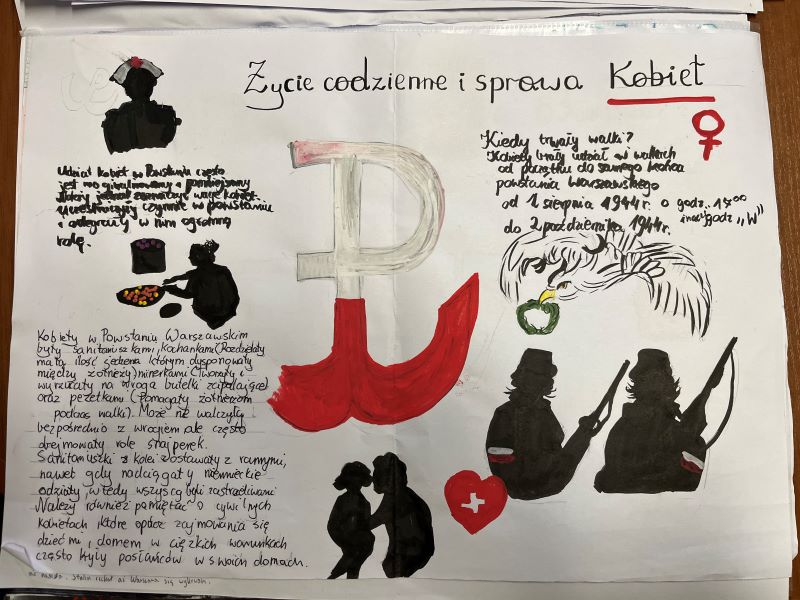 Życie codzienne i sprawa Kobiet
Udział kobiet w Powstaniu często
jest marginalizowany i pomniejszony
Należy jednak zaznaczyć wagę kobiet.
uczestniczyły czynnie w powstaniu
i odegrały w nim ogromną
rolę.
Kiedy trwały walki?
Kobiety brały udział w walkach
od początku do samego końca
powstania Warszawskiego
od 1 sierpnia 1944r. o godz. 17⁰⁰
inaczej godz „W"
do 2 października 1944r.
Kobiety w Powstaniu Warszawskim
były sanitariuszkami, kucharkami (Rozdzielały
małą ilość jedzenia którym dysponowały
między żołnierzy) minerkami (Tworzyły i
wyrzucały na wroga butelki zapalające)
oraz peżetkami (Pomagały żołnierzom
podczas walki). Może nie walczyły
bezpośrednio z wrogiem ale często
obejmowały role snajperek.
Sanitariuszki z kolei zostawały z rannymi,
nawet gdy nadciągały niemieckie
oddziały, wtedy wszyscy byli zastrzeliwani
Należy również pamiętać o cywilnych
kobietach, które oprócz zajmowania się
dziećmi i domem w ciężkich warunkach
często kryły posłańców w swoich domach.